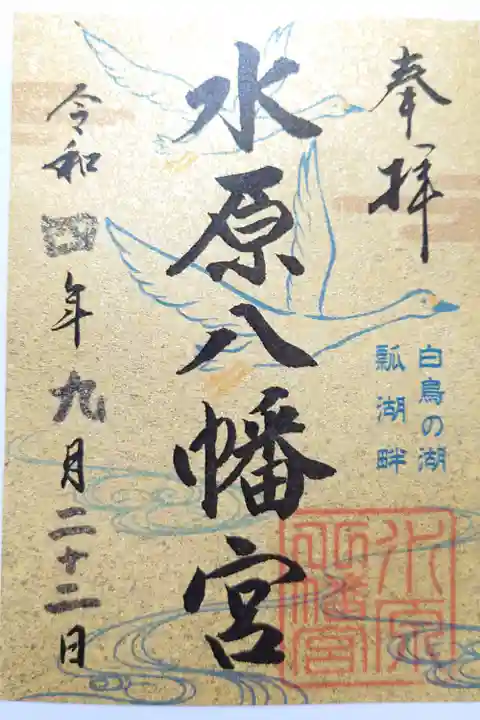 奉拝
白鳥の湖
瓢湖畔
水原八幡宮
水原八幡宮
令和四年九月二十二日